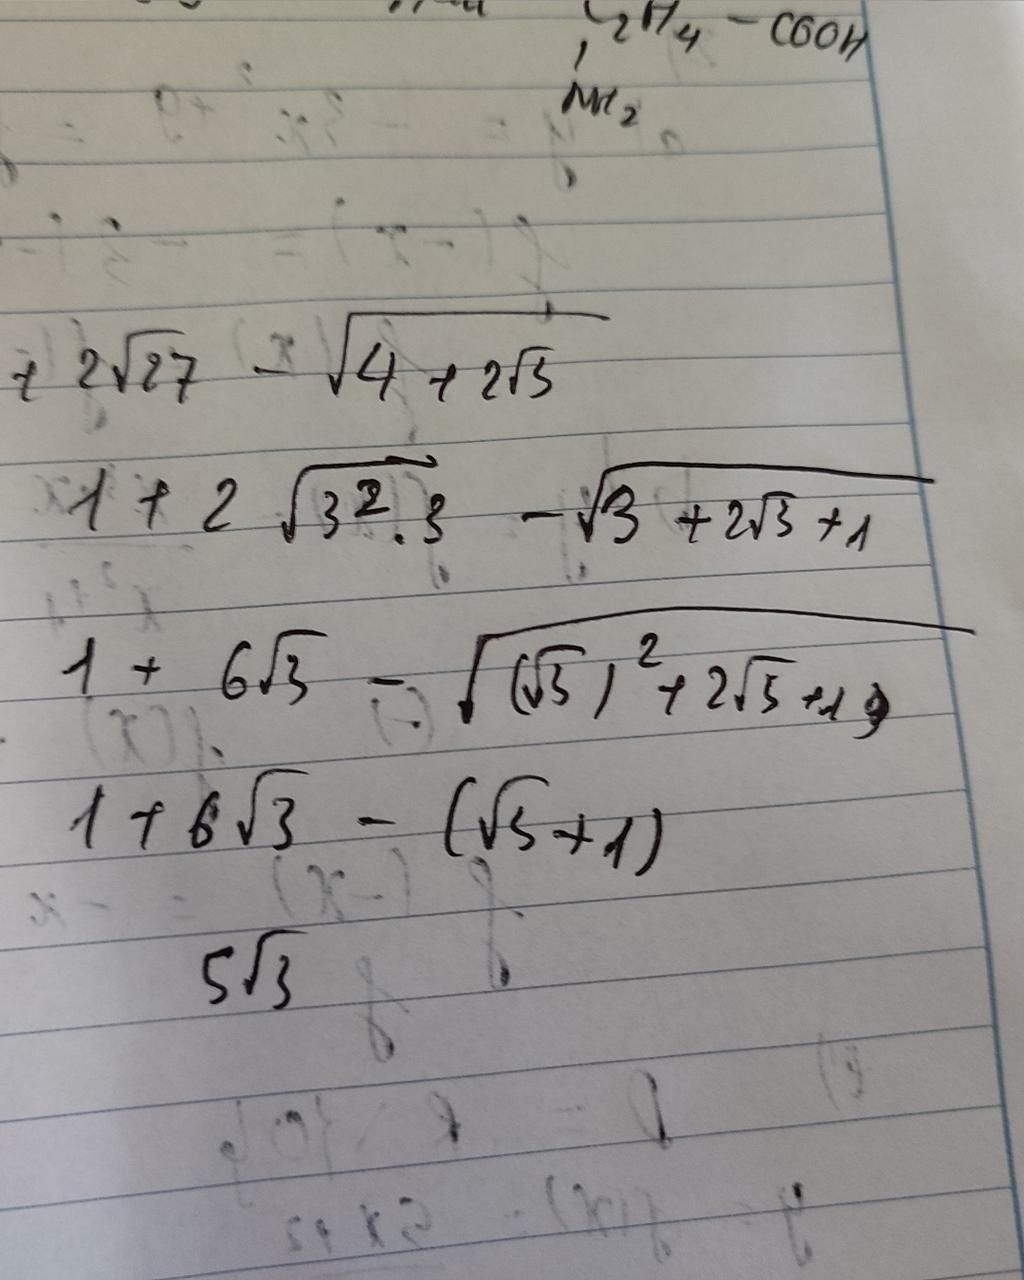 C₂H₄ - COOH
NH₂
+ 2√27 - √(4 + 2√3)
1 + 2√(3².3) - √(3 + 2√3 + 1)
1 + 6√3 - √((√3)² + 2√3 + 1)
1 + 6√3 - (√3 + 1)
5√3